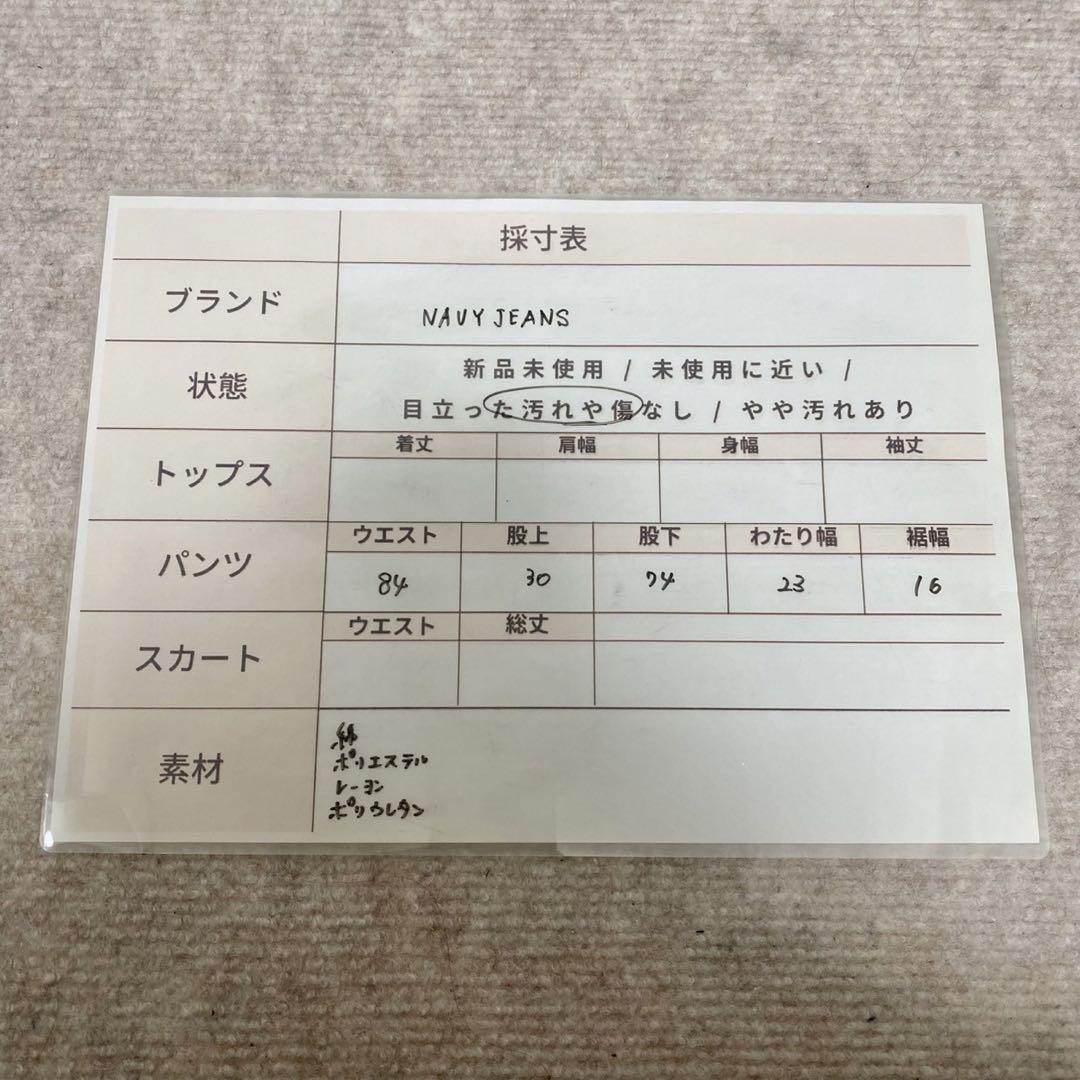 採寸表
ブランド
NAVY JEANS
状態
新品未使用 / 未使用に近い /
目立った汚れや傷なし / やや汚れあり
トップス
着丈 肩幅 身幅 袖丈
パンツ
ウエスト 股上 股下 わたり幅 裾幅
84 30 74 23 16
スカート
ウエスト 総丈
素材
綿
ポリエステル
レーヨン
ポリウレタン